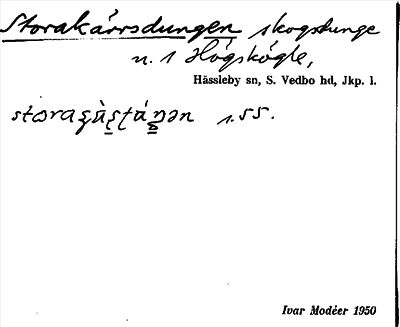 Storakärrsdungen skogsdunge
n. 1 Högskögle,
Hässleby sn, S. Vedbo hd, Jkp. l.
1.55.
Ivar Modéer 1950